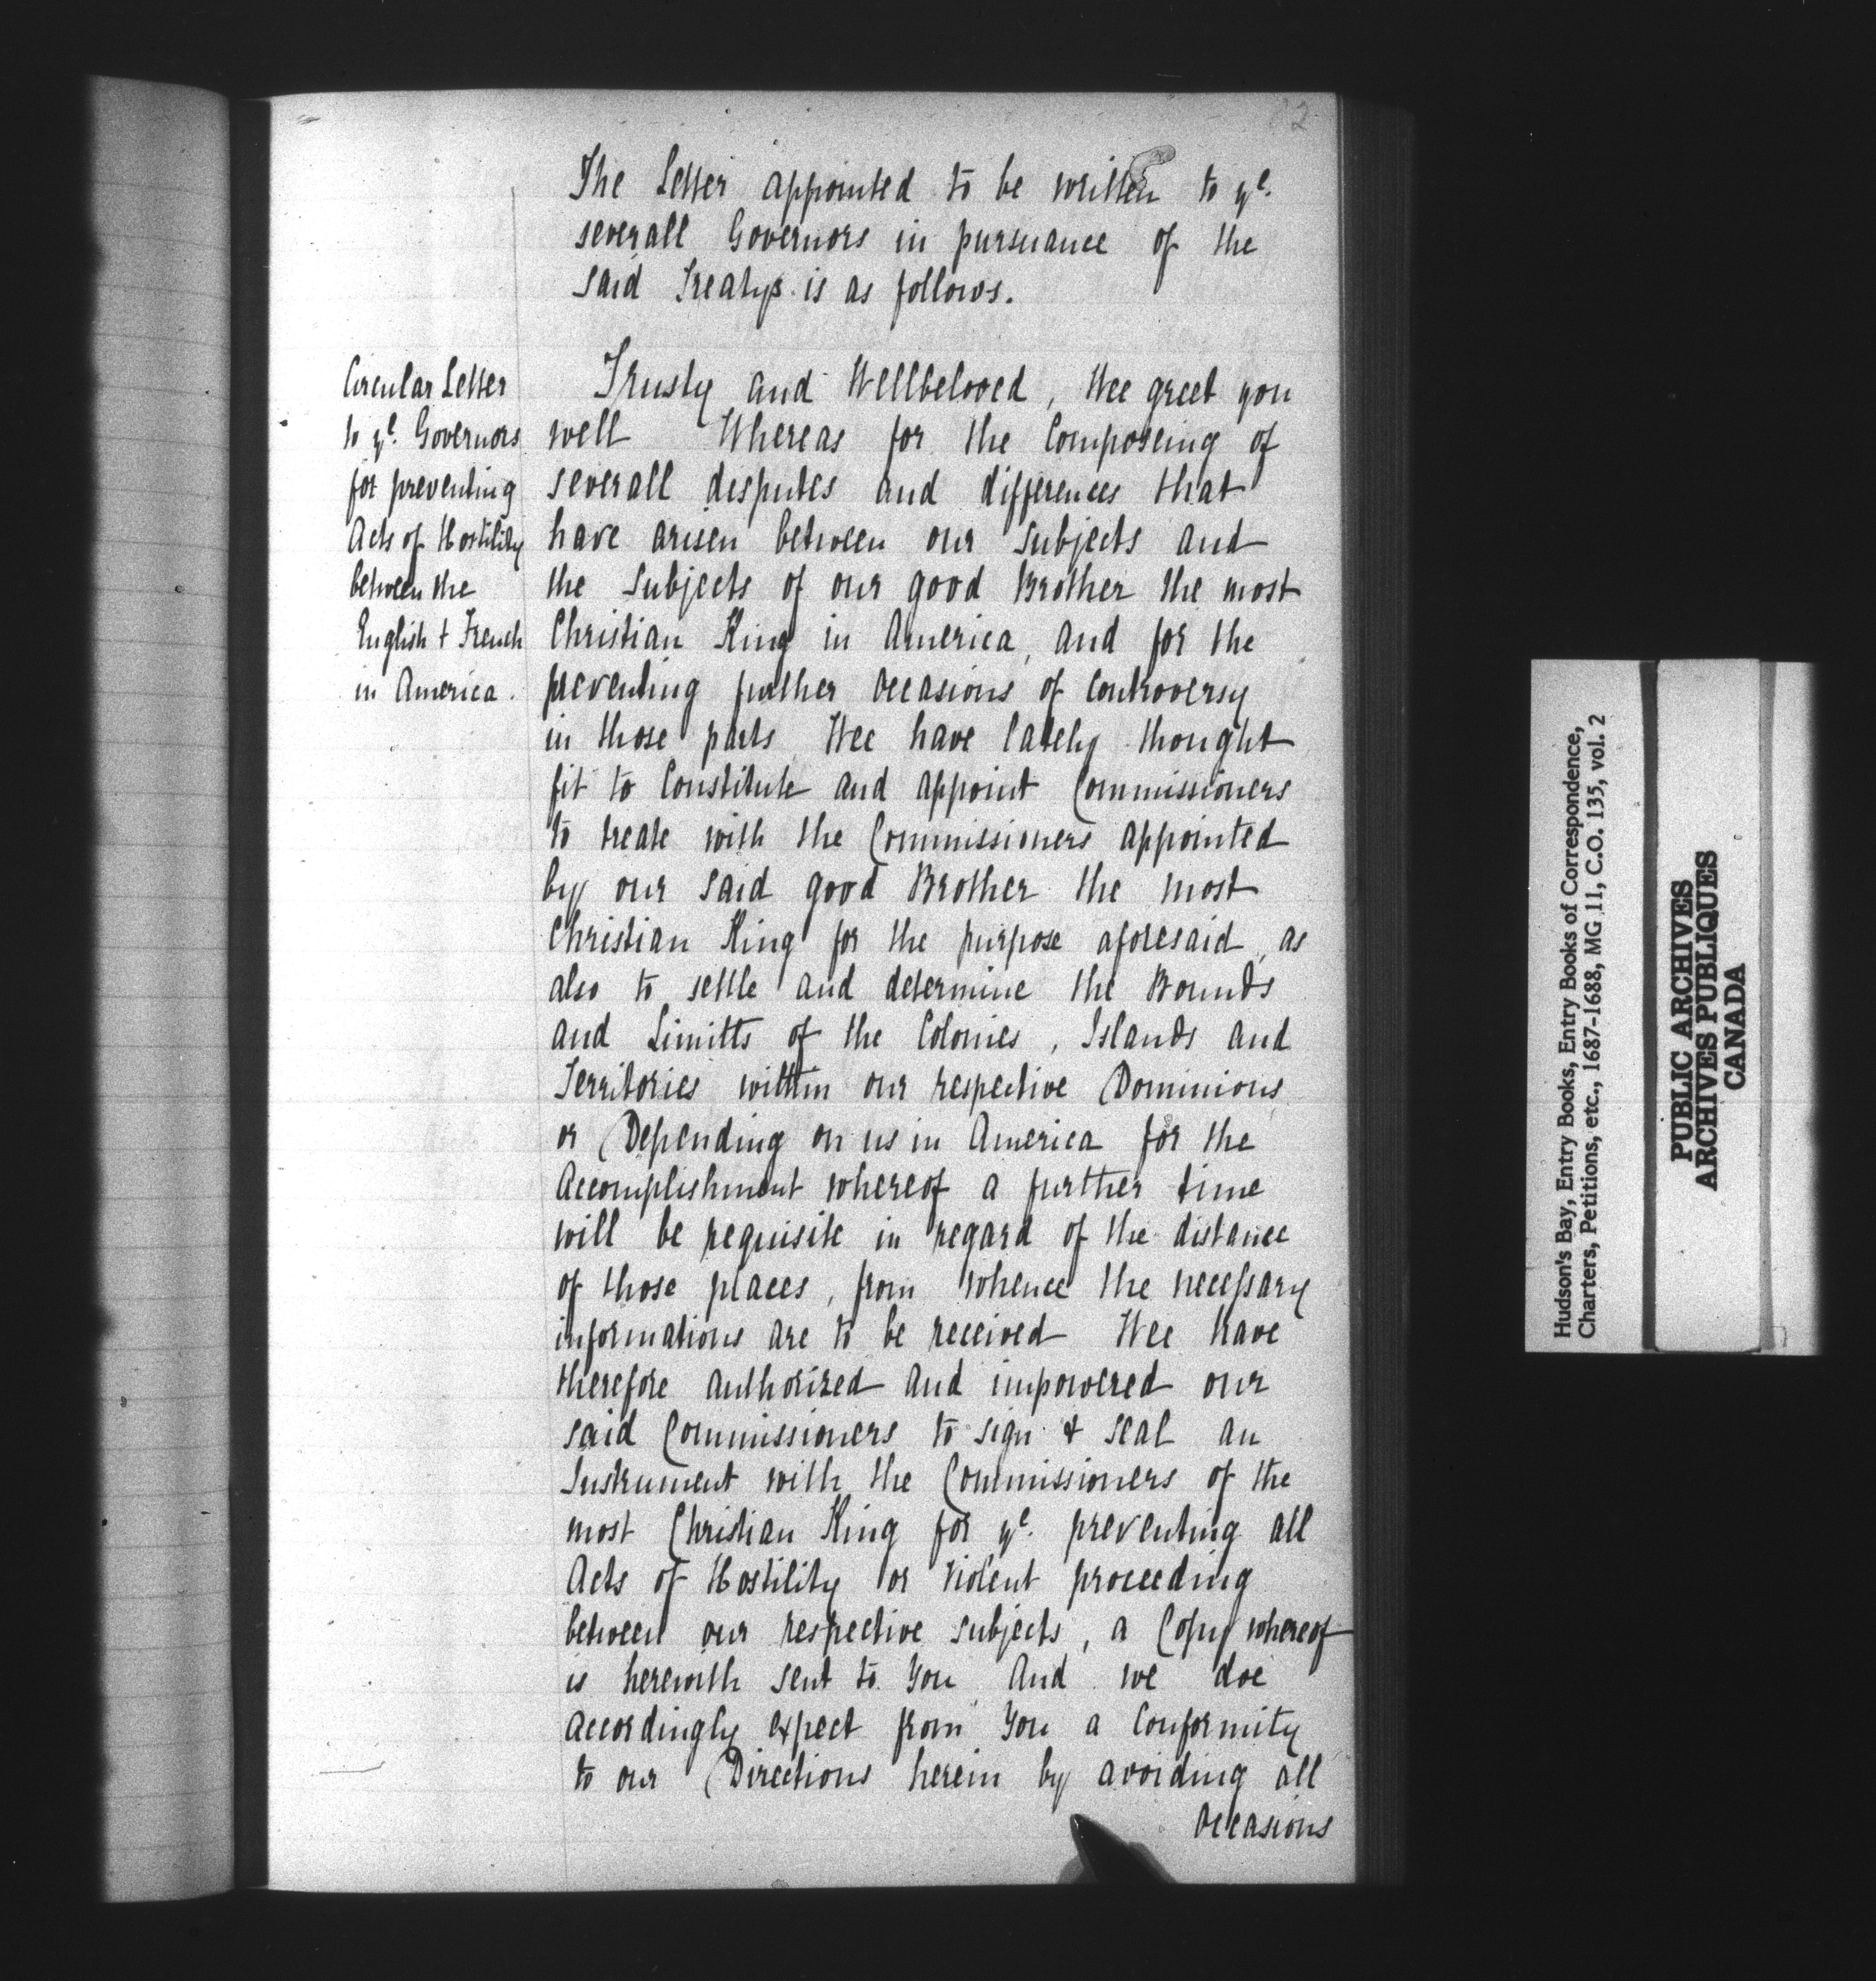 The Letter appointed to be written to ye.
severall Governors in pursuance of the
said Treatys is as follows.
Circular Letter
to ye. Governors
for preventing
Acts of Hostility
between the
English & French
in America.
Trusty and Wellbeloved, Wee greet you
well Whereas for the Composeing of
severall desputes and differences that
have arisen between our Subjects and
the Subjects of our good Brother the most
Christian King in America, and for the
preventing further occasions of controversy
in those parts Wee have lately thought
fit to Constitute and appoint Commissioners
to treate with the Commissioners appointed
by our said good Brother the most
Christian King for the purpose aforesaid, as
also to settle and determine the Bounds
and Limitts of the Colonies, Islands and
Territories within our respective Dominions
or Depending on us in America for the
Accomplishment whereof a further time
will be requisite in regard of the distance
of those places, from whence the necessary
informations are to be received Wee have
therefore authorized and impowered our
said Commissioners to sign & seal an
Instrument with the Commissioners of the
most Christian King for ye. preventing all
Acts of Hostility or violent proceeding
between our respective subjects, a Copy whereof
is herewith sent to You And we doe
accordingly expect from You a Conformity
to our Directions herein by avoiding all
occasions
Hudson's Bay, Entry Books, Entry Books of Correspondence,
Charters, Petitions, etc., 1687-1688, MG 11, C.O. 135, vol. 2
PUBLIC ARCHIVES
ARCHIVES PUBLIQUES
CANADA